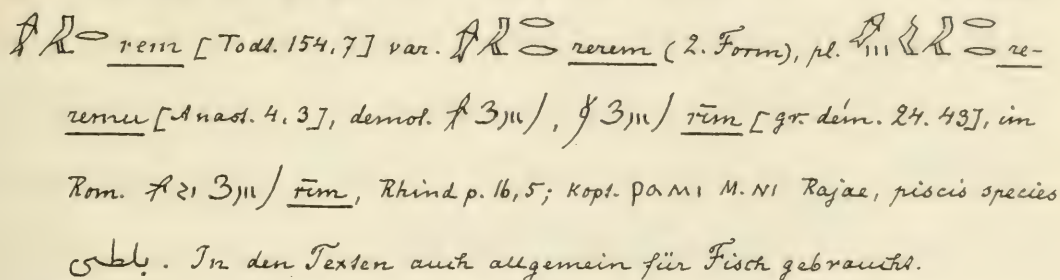 𓆛𓅓𓂋 rem [Todt. 154,7] var. 𓆛𓅓𓂋𓂋 rerem (2. Form), pl. re-
remu [Anast. 4.3], demot. rīm [gr. dém. 24. 43], im
Rom. rīm, Rhind p. 16,5; kopt. ⲣⲁⲙⲓ M. ⲛⲓ Rajae, piscis species
بلطى. In den Texten auch allgemein für Fisch gebraucht.